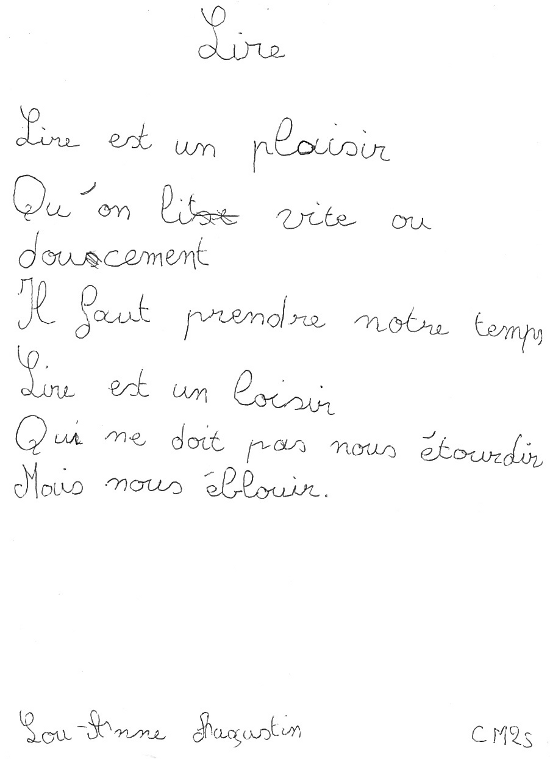 Lire
Lire est un plaisir
Qu'on lit vite ou
doucement
Il faut prendre notre temps
Lire est un loisir
Qui ne doit pas nous étourdir
Mais nous éblouir.
Lou-Anne Augustin CM2s